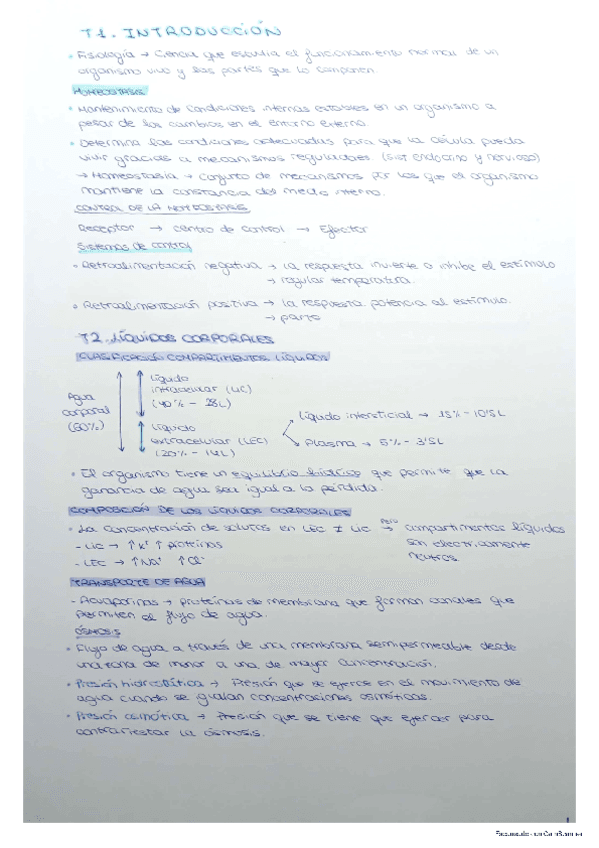 T1. INTRODUCCIÓN
• Fisiología → Ciencia que estudia el funcionamiento normal de un
organismo vivo y las partes que lo componen.
HOMEOSTASIS
• Mantenimiento de condiciones internas estables en un organismo a
pesar de los cambios en el entorno externo.
• Determina las condiciones adecuadas para que la célula pueda
vivir gracias a mecanismos reguladores (sist endocrino y nervioso)
→ Homeostasia → conjunto de mecanismos por los que el organismo
mantiene la constancia del medio interno.
CONTROL DE LA HOMEOSTASIS
Receptor → centro de control → Efector
Sistemas de control
• Retroalimentación negativa → la respuesta invierte o inhibe el estímulo
→ regular temperatura.
• Retroalimentación positiva → la respuesta potencia al estímulo.
→ parto
T2. LÍQUIDOS CORPORALES
CLASIFICACIÓN COMPARTIMENTOS LÍQUIDOS
Agua
corporal
(60%)
Líquido
intracelular (LIC)
(40% - 28L)
Líquido
extracelular (LEC)
(20% - 14L)
Líquido intersticial → 15% - 10'5L
Plasma → 5% - 3'5L
• El organismo tiene un equilibrio hídrico que permite que la
ganancia de agua sea igual a la pérdida.
COMPOSICIÓN DE LOS LÍQUIDOS CORPORALES
• La concentración de solutos en LEC ≠ LIC Pero → compartimentos líquidos
son electricamente
neutros.
- LIC → ↑K⁺ ↑proteínas
- LEC → ↑Na⁺ ↑Cl⁻
TRANSPORTE DE AGUA
- Acuaporinas → proteínas de membrana que forman canales que
permiten el flujo de agua.
ÓSMOSIS
• Flujo de agua a través de una membrana semipermeable desde
una zona de menor a una de mayor concentración.
• Presión hidrostática → Presión que se ejerce en el movimiento de
agua cuando se igualan concentraciones osmóticas.
• Presión osmótica → Presión que se tiene que ejercer para
contrarrestar la ósmosis.
1